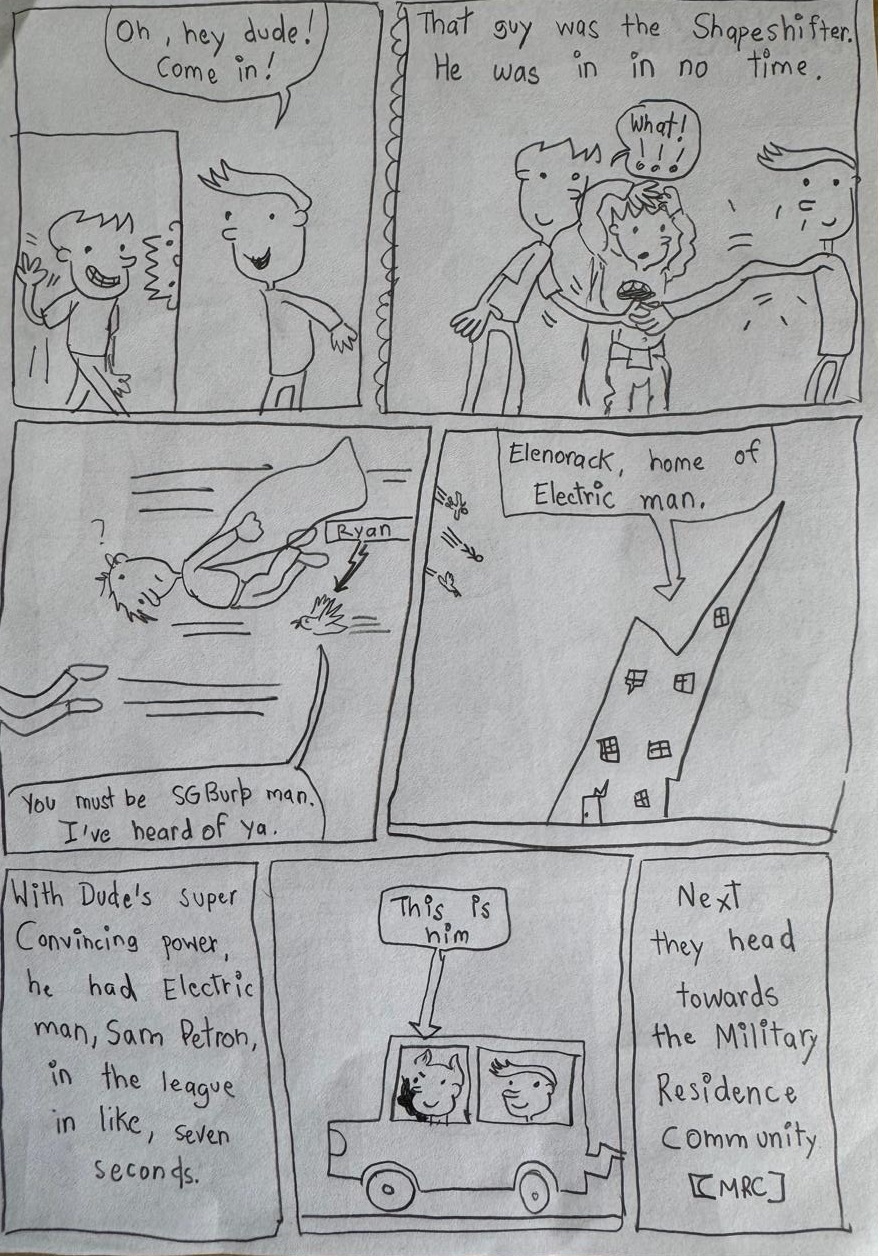 Oh, hey dude!
Come in!
That guy was the Shapeshifter.
He was in in no time.
What!
!!!
?
Ryan
You must be SGBurp man.
I've heard of ya.
Elenorack, home of
Electric man.
With Dude's super
Convincing power,
he had Electric
man, Sam Petron,
in the league
in like, seven
seconds.
This is
him
Next
they head
towards
the Military
Residence
Community
[MRC]